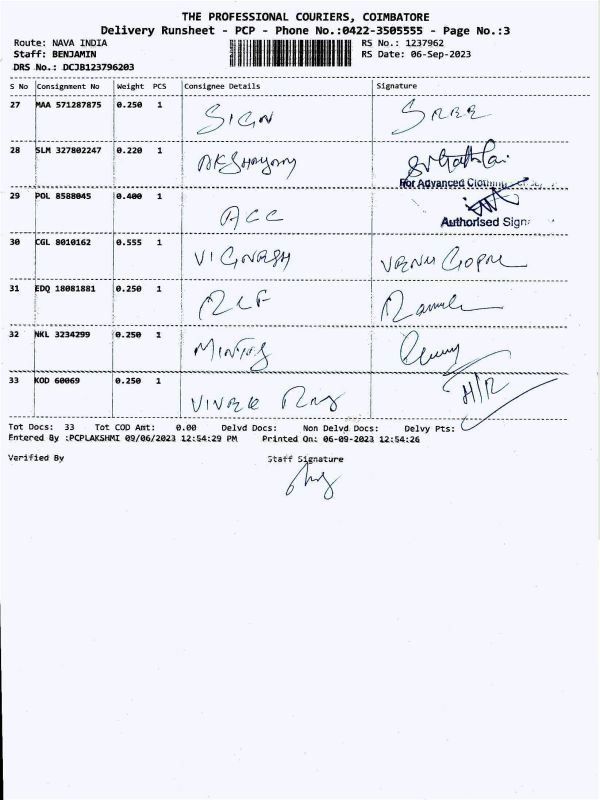 THE PROFESSIONAL COURIERS, COIMBATORE
Delivery Runsheet - PCP - Phone No.:0422-3505555 - Page No.:3
Route: NAVA INDIA RS No.: 1237962
Staff: BENJAMIN RS Date: 06-Sep-2023
DRS No.: DCJB123796203
S No Consignment No Weight PCS Consignee Details Signature
27 MAA 571287875 0.250 1 SIGN SREE
28 SLM 327802247 0.220 1
For Advanced Clothing
29 POL 8588045 0.400 1 ACC
Authorised Sign
30 CGL 8010162 0.555 1 VIGNESH VENU GOPAL
31 EDQ 18081881 0.250 1
32 NKL 3234299 0.250 1
33 KOD 60069 0.250 1 VIVEK H/R
Tot Docs: 33 Tot COD Amt: 0.00 Delvd Docs: Non Delvd Docs: Delvy Pts:
Entered By :PCPLAKSHMI 09/06/2023 12:54:29 PM Printed On: 06-09-2023 12:54:26
Verified By Staff Signature